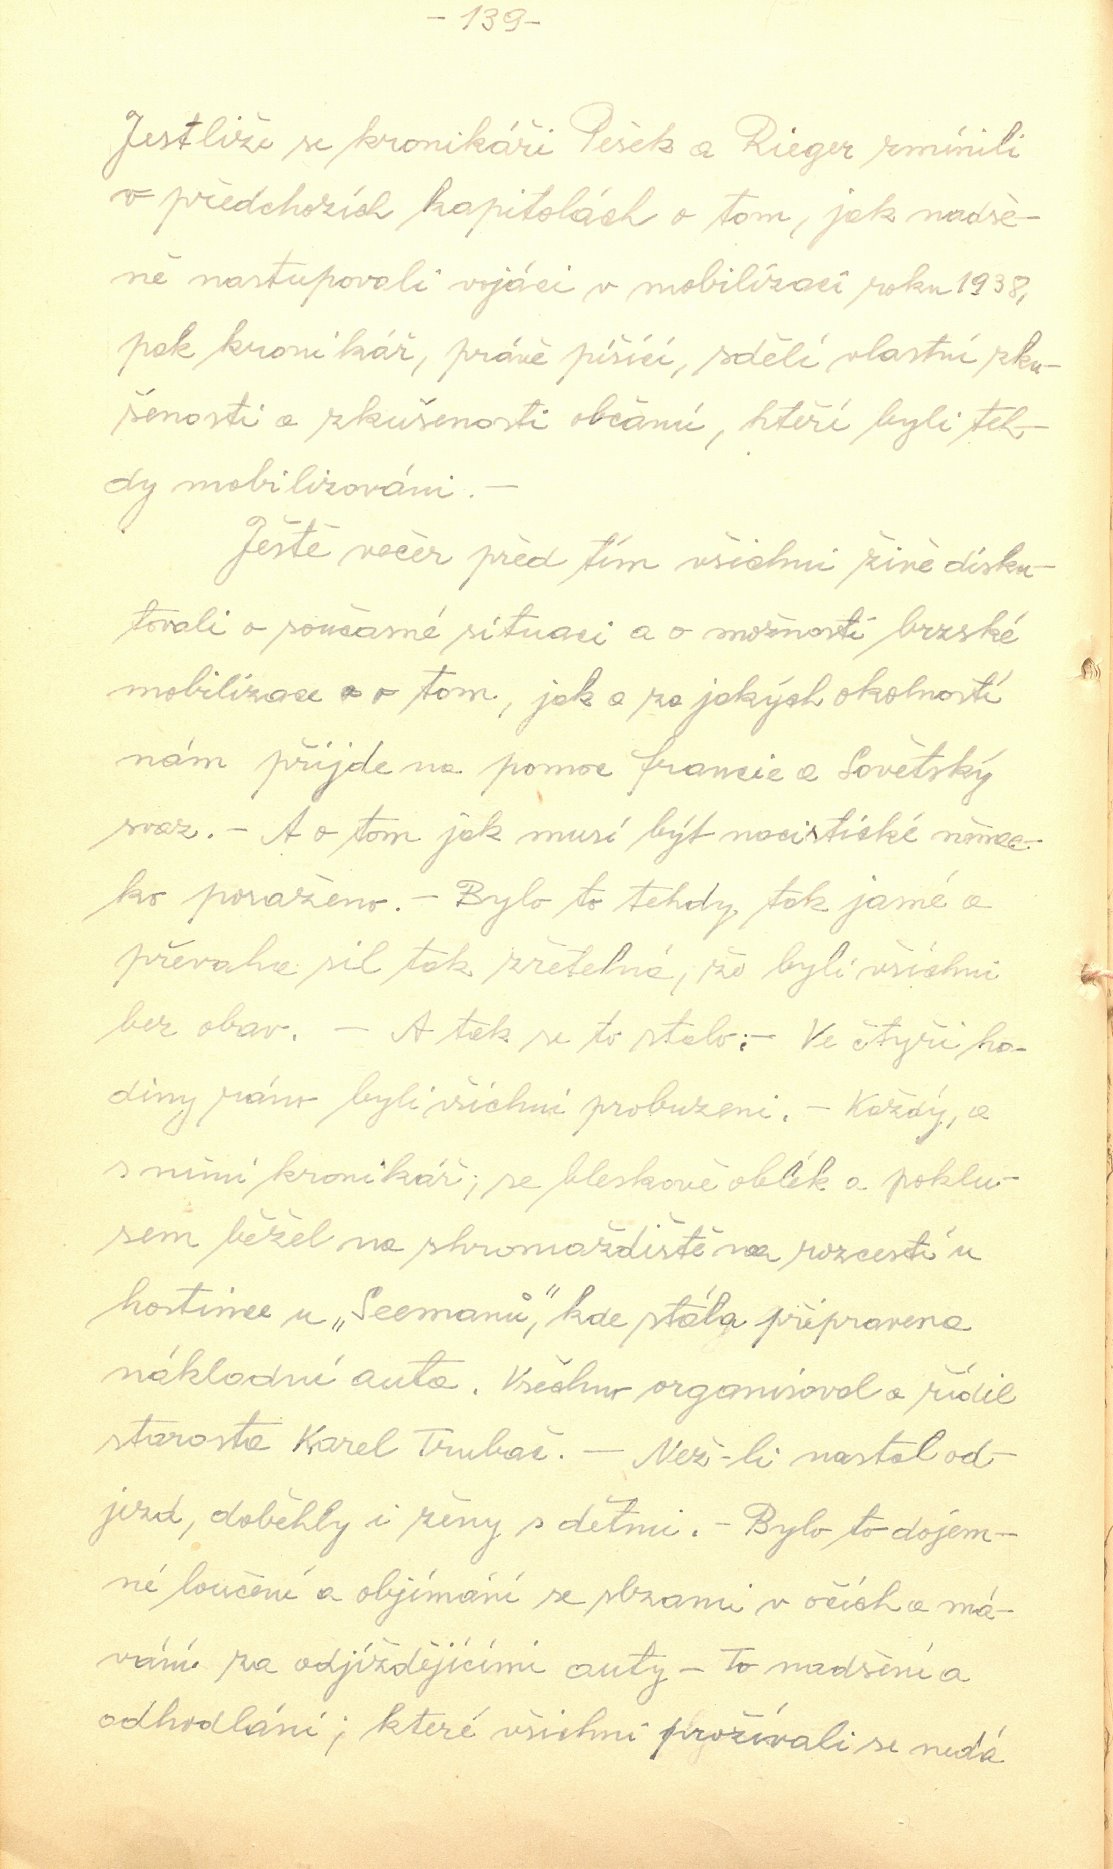 - 139 -
Jestliže se kronikáři Pešek a Rieger zmínili
v předchozích kapitolách o tom, jak nadše-
ně nastupovali vojáci v mobilizaci roku 1938,
pak kronikář, právě píšící, sdělí vlastní zku-
šenosti a zkušenosti občanů, kteří byli teh-
dy mobilizováni. -
Ještě večer před tím všichni živě disku-
tovali o současné situaci a o možnosti brzské
mobilizace a o tom, jak a za jakých okolností
nám přijde na pomoc Francie a Sovětský
svaz. - A o tom jak musí být nacistické němec-
ko poraženo. - Bylo to tehdy tak jasné a
převaha sil tak zřetelná, že byli všichni
bez obav. - A tak se to stalo: - Ve čtyři ho-
diny ráno byli všichni probuzeni. - Každý, a
s nimi kronikář, se bleskově oblék a poklu-
sem běžel na shromaždiště na rozcestí u
hostince u „Seemanů", kde stála připravena
nákladní auta. Všechno organisoval a řídil
starosta Karel Trubač. - Než-li nastal od-
jezd, doběhly i ženy s dětmi. - Bylo to dojem-
né loučení a objímání se slzami v očích a má-
vání za odjíždějícími auty - To nadšení a
odhodlání; které všichni prožívali se nedá